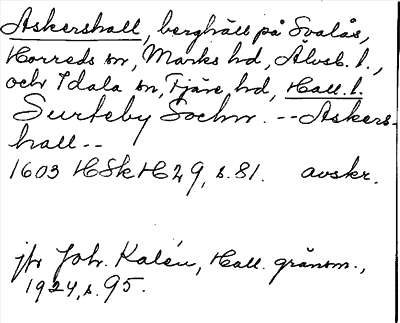 Askershall, berghäll på Svalås,
Horreds sn, Marks hd, Älvsb. l.,
och Idala sn, Fjäre, hd, Hall. l.
Surteby Sochn. -- Askers-
hall --
1603 HSkH 29, s. 81. avskr.
jfr Joh. Kalén, Hall. gränsm.,
1924, s. 95.